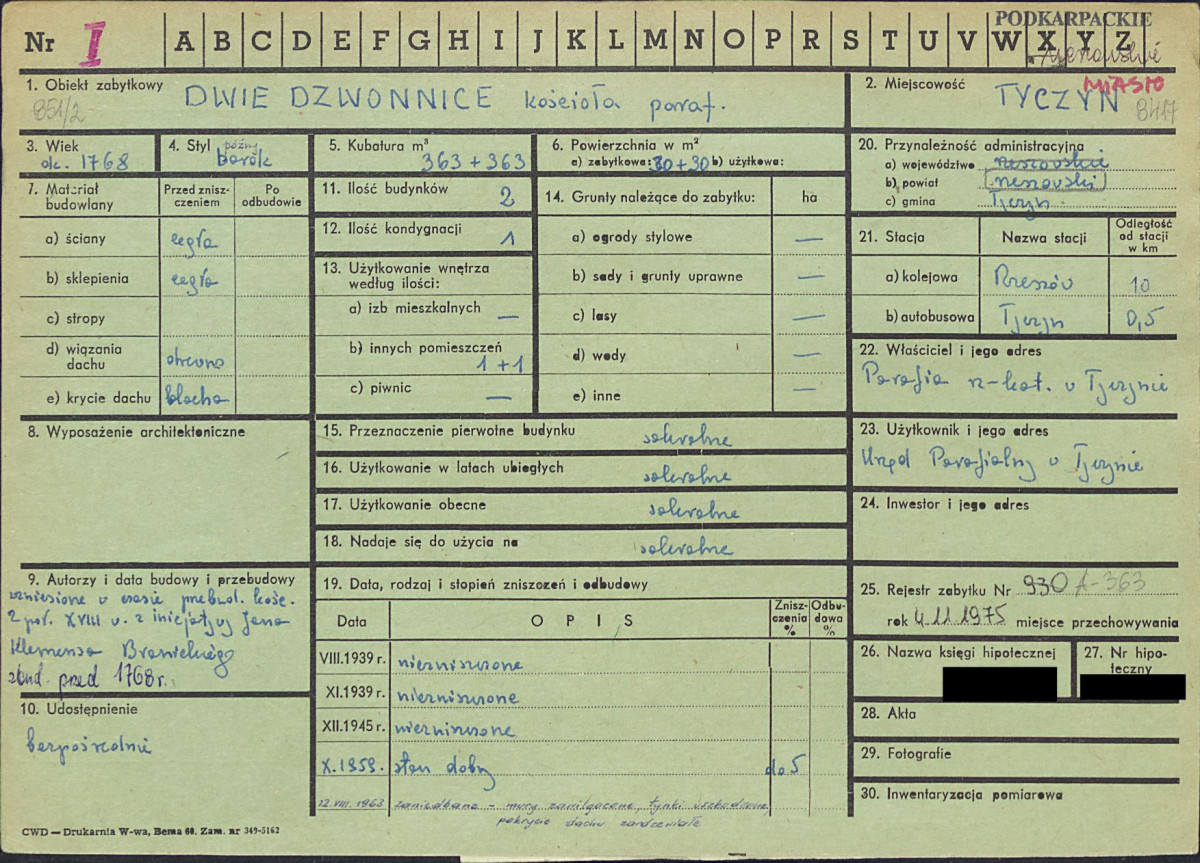 PODKARPACKIE
Nr I A B C D E F G H I J K L M N O P R S T U V W X Y Z
MIASTO
1. Obiekt zabytkowy
851/2
DWIE DZWONNICE kościoła paraf.
2. Miejscowość
TYCZYN
8417
3. Wiek
ok. 1768
4. Styl późny
barok
5. Kubatura m³
363 + 363
6. Powierzchnia w m²
a) zabytkowa: 30+30 b) użytkowa:
20. Przynależność administracyjna
a) województwo rzeszowskie
b) powiat rzeszowski
c) gmina Tyczyn
7. Materiał budowlany
Przed zniszczeniem
Po odbudowie
a) ściany cegła
b) sklepienia cegła
c) stropy
d) wiązania dachu drewno
e) krycie dachu blacha
11. Ilość budynków 2
12. Ilość kondygnacji 1
13. Użytkowanie wnętrza według ilości:
a) izb mieszkalnych —
b) innych pomieszczeń
1 + 1
c) piwnic —
14. Grunty należące do zabytku: ha
a) ogrody stylowe —
b) sady i grunty uprawne —
c) lasy —
d) wody —
e) inne —
21. Stacja
Nazwa stacji
Odległość od stacji w km
a) kolejowa Rzeszów 10
b) autobusowa Tyczyn 0,5
22. Właściciel i jego adres
Parafia rz-kat. w Tyczynie
8. Wyposażenie architektoniczne
15. Przeznaczenie pierwotne budynku sakralne
16. Użytkowanie w latach ubiegłych sakralne
17. Użytkowanie obecne sakralne
18. Nadaje się do użycia na sakralne
23. Użytkownik i jego adres
Urząd Parafialny w Tyczynie
24. Inwestor i jego adres
9. Autorzy i data budowy i przebudowy
wzniesione w czasie przebud. kośc.
2 poł. XVIII w. z inicjatywy Jana
Klemensa Branickiego
zbud. przed 1768 r.
10. Udostępnienie
bezpośrednie
19. Data, rodzaj i stopień zniszczeń i odbudowy
Data
OPIS
Zniszczenia %
Odbudowa %
VIII.1939 r. niezniszczone
XI.1939 r. niezniszczone
XII.1945 r. niezniszczone
X.1959. stan dobry do 5
12.VIII.1963 zaniedbane - mury zawilgocone, tynki uszkodzone,
pokrycie dachu zardzewiałe
25. Rejestr zabytku Nr 930 A-363
rok 4.11.1975 miejsce przechowywania
26. Nazwa księgi hipotecznej
27. Nr hipoteczny
28. Akta
29. Fotografie
30. Inwentaryzacja pomiarowa
CWD — Drukarnia W-wa, Bema 60. Zam. nr 349-5162